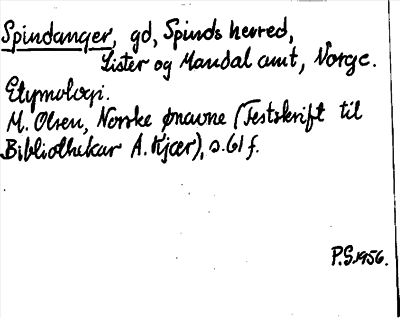 Spindanger, gd, Spinds herred,
Lister og Mandal amt, Norge.
Etymologi.
M. Olsen, Norske ønavne (Festskrift til
Bibliothekar A. Kjær), s. 61 f.
P.S. 1956.